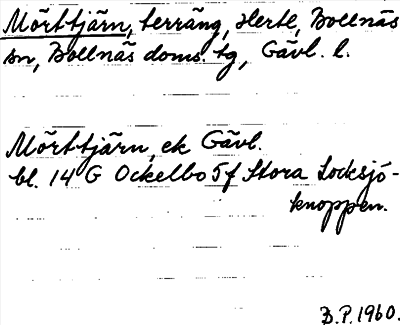 Mörttjärn, terräng, Herte, Bollnäs
sn, Bollnäs doms. tg, Gävl. l.
Mörttjärn, ek Gävl.
bl. 14 G Ockelbo 5f Stora Locksjö-
knoppen.
B.P. 1960.